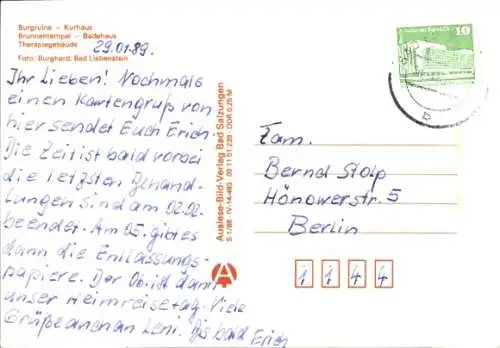 Burgruine – Kurhaus
Brunnentempel – Badehaus
Therapiegebäude
Foto: Burghard, Bad Liebenstein
29.01.89.
Ihr Lieben! Nochmals
einen Kartengruß von
hier sendet Euch Erich.
Die Zeit ist bald vorbei
die letzten Behand-
lungen sind am 02.02.
beendet. Am 05. gibt es
dann die Entlassungs-
papiere. Der 06. ist dann
unser Heimreisetag. Viele
Grüße auch an Leni. Bis bald Erich
Auslese-Bild-Verlag Bad Salzungen
S 1/88 IV-14-483 09 11 01 239 DDR 0,25 M
A
10
Fam.
Bernd Stolp
Hönowerstr. 5
Berlin
1 1 4 4